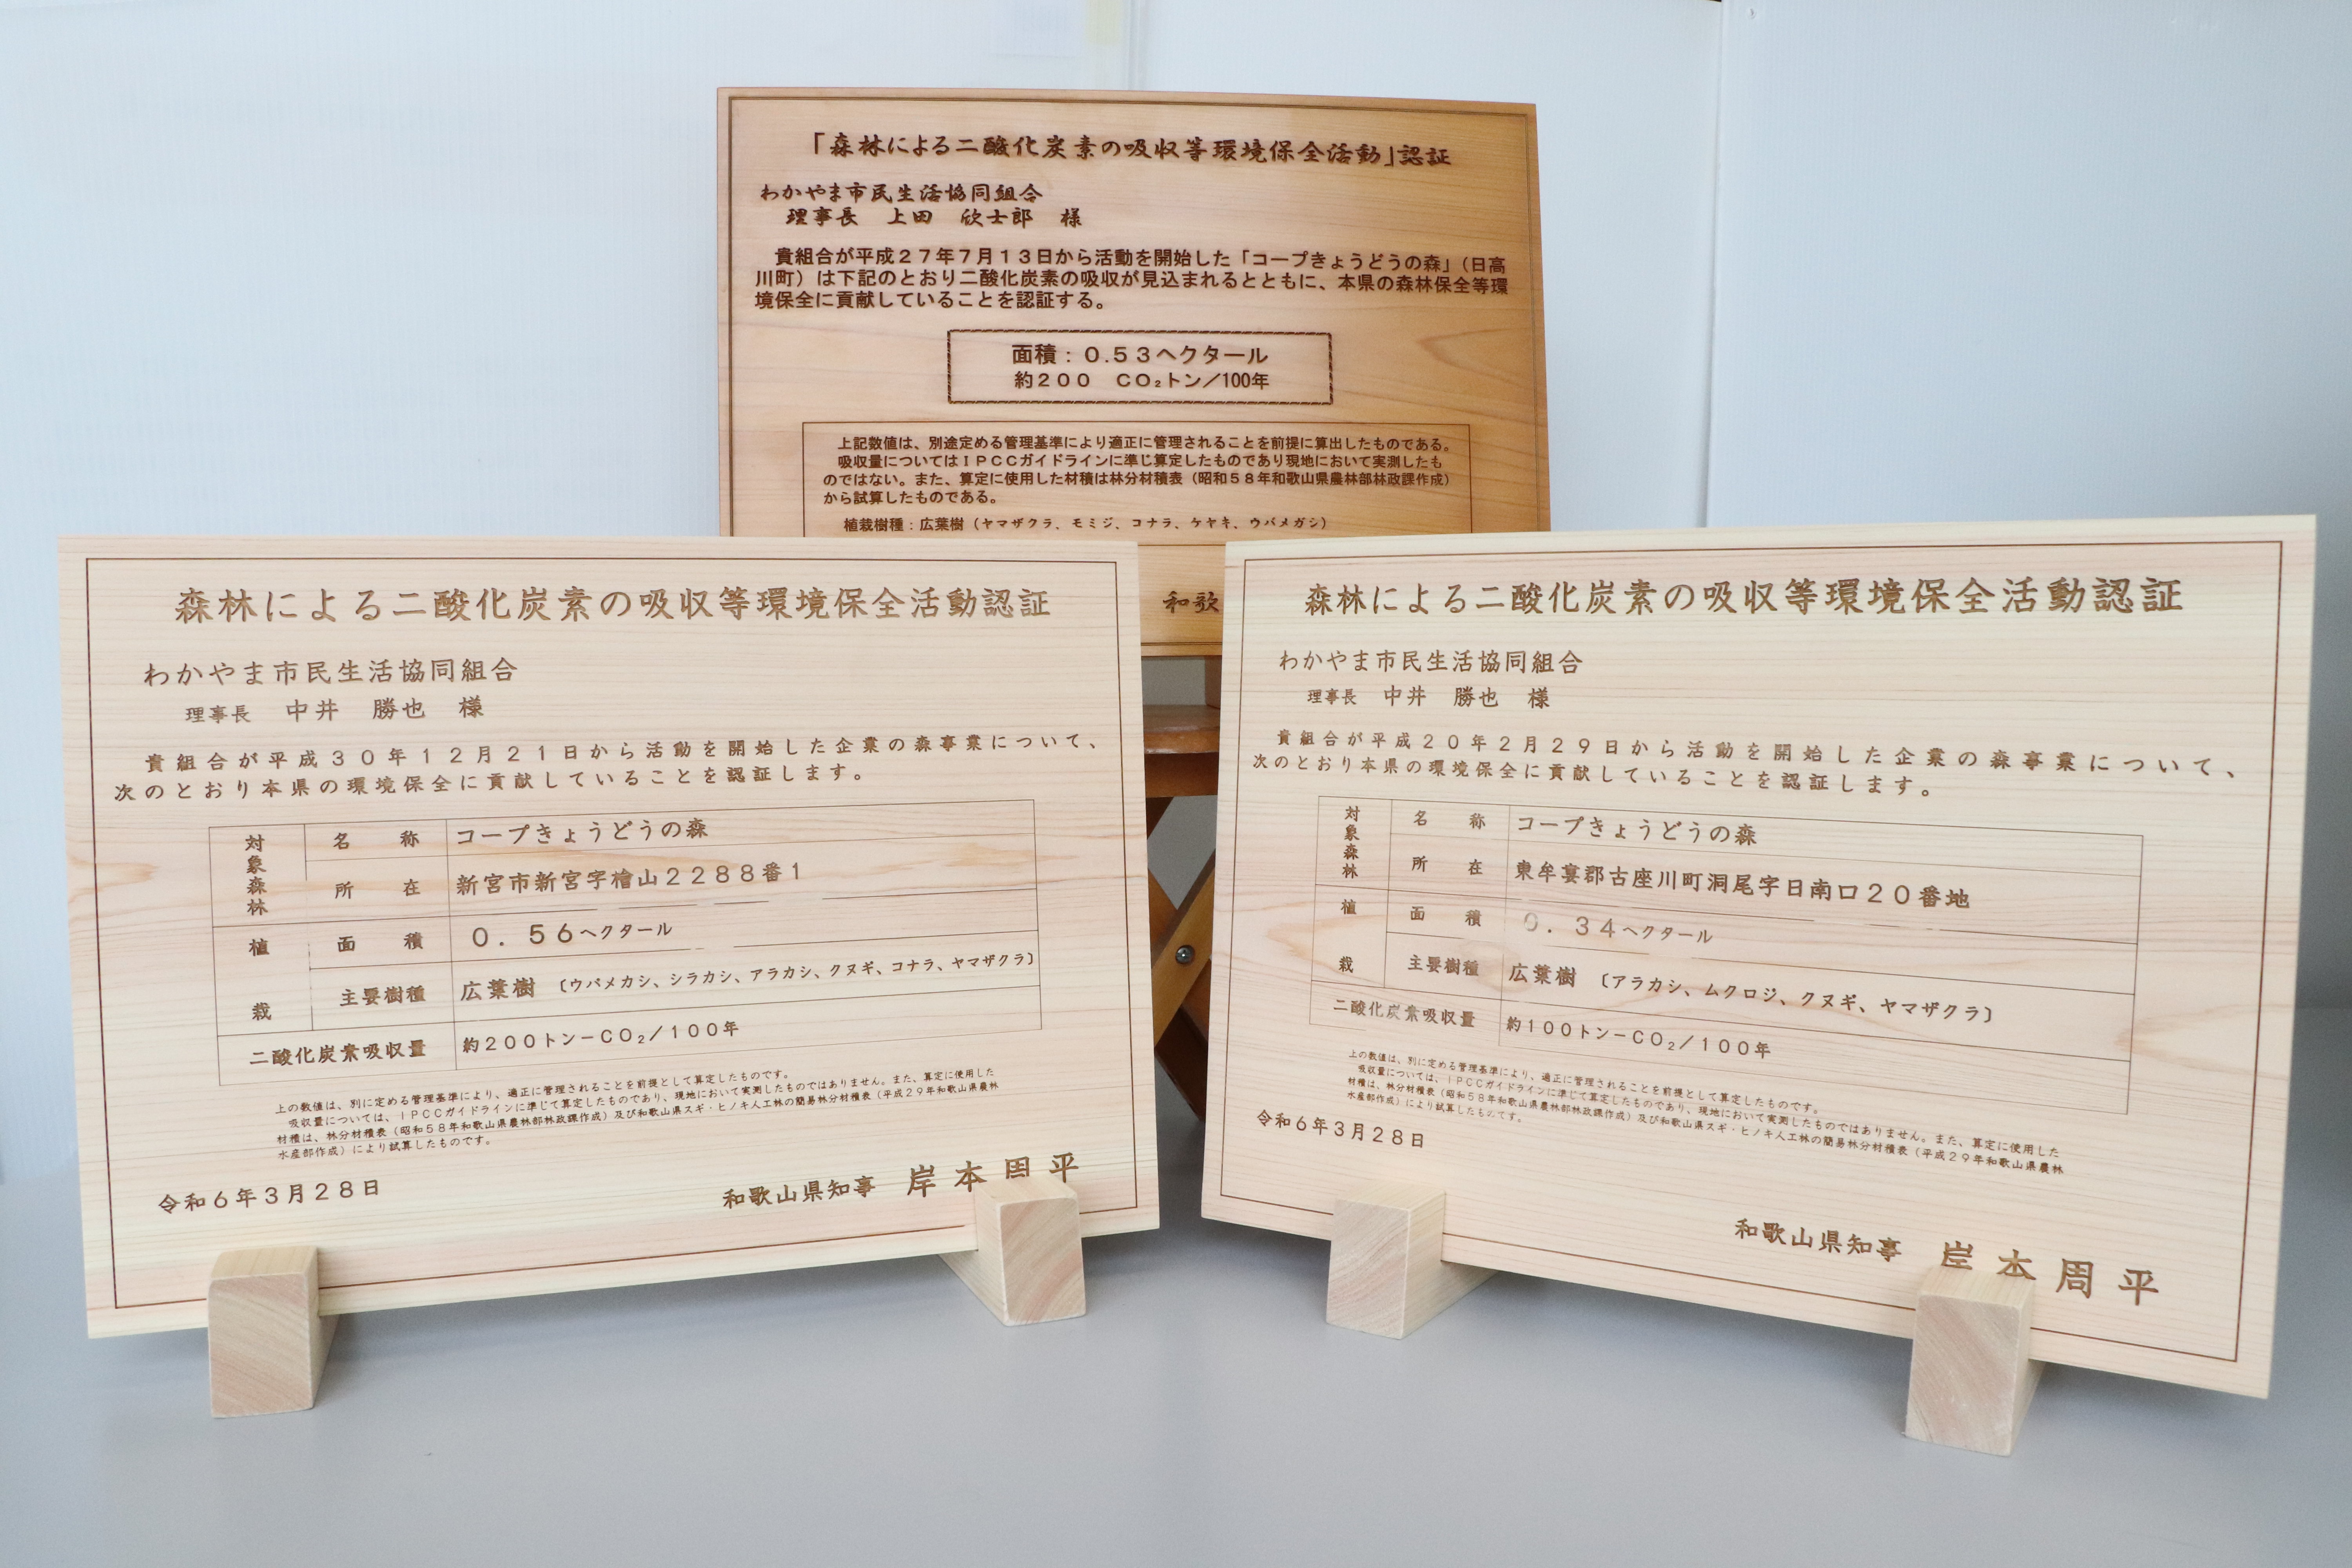 「森林による二酸化炭素の吸収等環境保全活動」認証
わかやま市民生活協同組合
理事長 上田 欣士郎 様
貴組合が平成27年7月13日から活動を開始した「コープきょうどうの森」(日高
川町)は下記のとおり二酸化炭素の吸収が見込まれるとともに、本県の森林保全等環
境保全に貢献していることを認証する。
面積:0.53ヘクタール
約200 CO₂トン/100年
上記数値は、別途定める管理基準により適正に管理されることを前提に算出したものである。
吸収量についてはIPCCガイドラインに準じ算定したものであり現地において実測したも
のではない。また、算定に使用した材積は林分材積表(昭和58年和歌山県農林部林政課作成)
から試算したものである。
植栽樹種:広葉樹(ヤマザクラ、モミジ、コナラ、ケヤキ、ウバメガシ)
和歌
森林による二酸化炭素の吸収等環境保全活動認証
わかやま市民生活協同組合
理事長 中井 勝也 様
貴組合が平成30年12月21日から活動を開始した企業の森事業について、
次のとおり本県の環境保全に貢献していることを認証します。
対象森林 名称 コープきょうどうの森
所在 新宮市新宮字檜山2288番1
植栽 面積 0.56ヘクタール
主要樹種 広葉樹 〔ウバメカシ、シラカシ、アラカシ、クヌギ、コナラ、ヤマザクラ〕
二酸化炭素吸収量 約200トン-CO₂/100年
上の数値は、別に定める管理基準により、適正に管理されることを前提として算定したものです。
吸収量については、IPCCガイドラインに準じて算定したものであり、現地において実測したものではありません。また、算定に使用した
材積は、林分材積表(昭和58年和歌山県農林部林政課作成)及び和歌山県スギ・ヒノキ人工林の簡易林分材積表(平成29年和歌山県農林
水産部作成)により試算したものです。
令和6年3月28日
和歌山県知事 岸本周平
森林による二酸化炭素の吸収等環境保全活動認証
わかやま市民生活協同組合
理事長 中井 勝也 様
貴組合が平成20年2月29日から活動を開始した企業の森事業について、
次のとおり本県の環境保全に貢献していることを認証します。
対象森林 名称 コープきょうどうの森
所在 東牟婁郡古座川町洞尾字日南口20番地
植栽 面積 0.34ヘクタール
主要樹種 広葉樹 〔アラカシ、ムクロジ、クヌギ、ヤマザクラ〕
二酸化炭素吸収量 約100トン-CO₂/100年
上の数値は、別に定める管理基準により、適正に管理されることを前提として算定したものです。
吸収量については、IPCCガイドラインに準じて算定したものであり、現地において実測したものではありません。また、算定に使用した
材積は、林分材積表(昭和58年和歌山県農林部林政課作成)及び和歌山県スギ・ヒノキ人工林の簡易林分材積表(平成29年和歌山県農林
水産部作成)により試算したものです。
令和6年3月28日
和歌山県知事 岸本周平